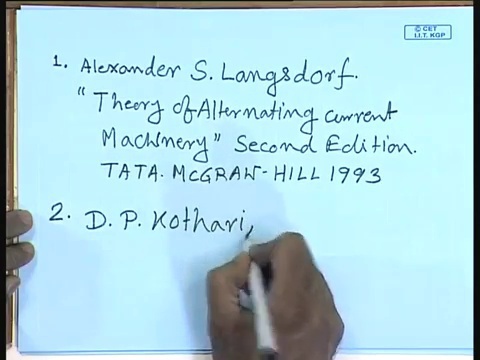 © CET
I.I.T. KGP
1. Alexander S. Langsdorf.
"Theory of Alternating current
Machinery" Second Edition.
TATA. McGRAW-HILL 1993
2. D. P. Kothari,